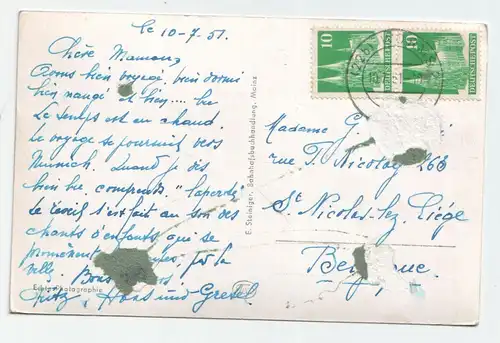 le 10-7-51.
Chère Maman,
Avons bien voyagé, bien dormi
bien mangé et bien.... bu
Le temps est au chaud.
Le voyage se poursuit vers
Munich. Quand je dis
bien bu, comprends "laperds"
Le réveil s'est fait au son des
chants d'enfants qui se
promènent par la
ville. Bons
Fritz, Hans und Gretel
Echte Photographie
E. Steiniger, Bahnhofsbuchhandlung, Mainz
10 DEUTSCHE POST
10 DEUTSCHE POST
Madame G.
rue T. Nicolay 268
St Nicolas-lez-Liége